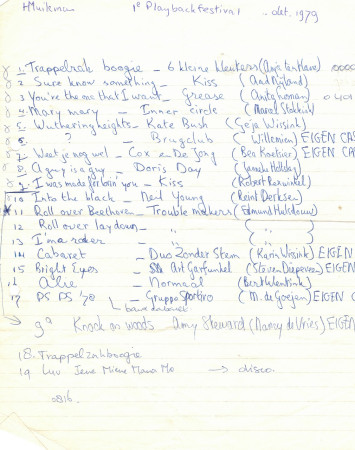 HMuileman 1e Playbackfestival - okt. 1979
1. Trappelzak boogie - 6 kleine kleuters (Anja ten Have) 0000
2 Sure know something - Kiss (Aad Nijland)
3 You're the one that I want - Grease (Anita Roman) 0401
4 Mary mary - Inner circle (Marcel
5. Wuthering heights - Kate Bush (Geja Wissink)
6. ? - Brugclub (Willemien) EIGEN CAS
7 Weet je nog wel - Cox en De Jong (Ben Koetsier) EIGEN CA
8. A guy is a guy - Doris Day (Janneke
9. I was made for lovin you - Kiss (Robert
10. Into the black - Neil Young (Reint Derksen)
* 11 Roll over Beethoven - Trouble makers (Edmund
12 Roll over lay down - " ( " )
13 I'm a roker - " ( " )
14 Cabaret - Duo Zonder Stem (Karin Wissink) EIGEN
15 Bright Eyes - Art Garfunkel (Steven Diepeveen) EIGEN C
16 Alie - Normaal (Bert
17 PS PS '70 - Gruppo Sportivo (M. de Goejen) EIGEN C
9a Knock on woods - Amy Steward (Nancy de Vries) EIGEN
18. Trappelzakboogie
19 Luv Iene Miene Mana Mo → disco.
0816.